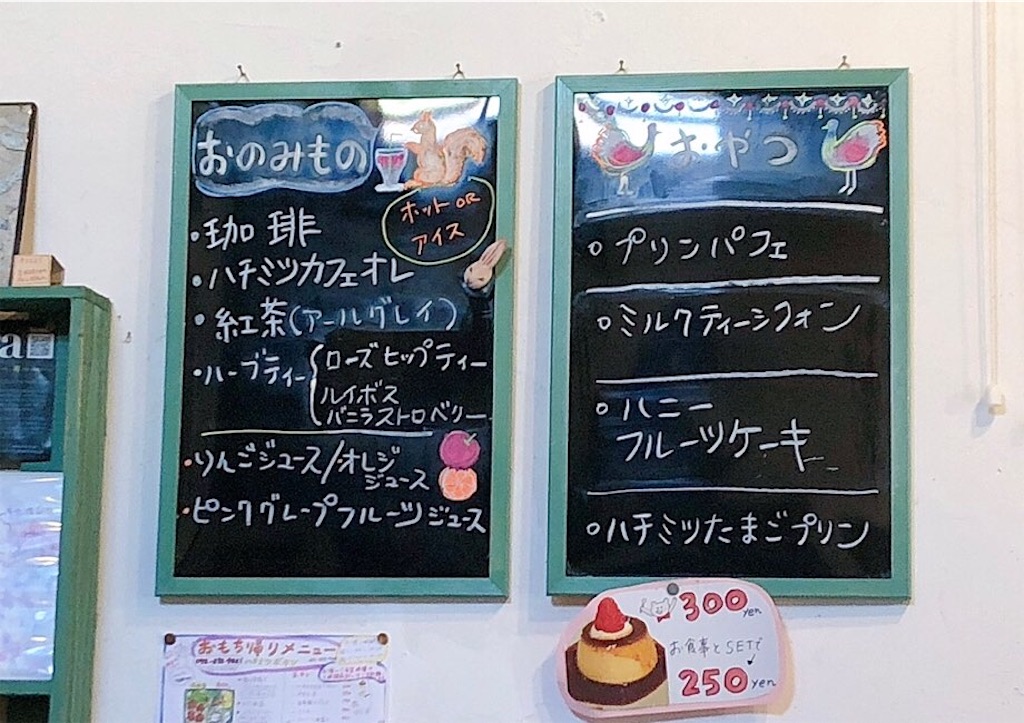 おのみもの
ホット OR
アイス
・珈琲
・ハチミツカフェオレ
・紅茶(アールグレイ)
・ハーブティー
ローズヒップティー
ルイボス
バニラストロベリー
・りんごジュース/オレジ
ジュース
・ピンクグレープフルーツジュース
お・やつ
○プリンパフェ
○ミルクティーシフォン
○ハニー
フルーツケーキ
○ハチミツたまごプリン
300yen
お食事とSETで
250yen
おもち帰りメニュー